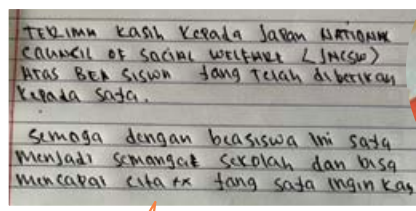 TERIMA kasih kepada Japan NATIONAL
COUNCIL OF SOCIAL WELFARE (JNCSW)
ATAS BEA SISWA yang Telah diberikan
kepada saya.
semoga dengan beasiswa ini saya
menjadi semangat sekolah dan bisa
mencapai cita xx yang saya ingin kan